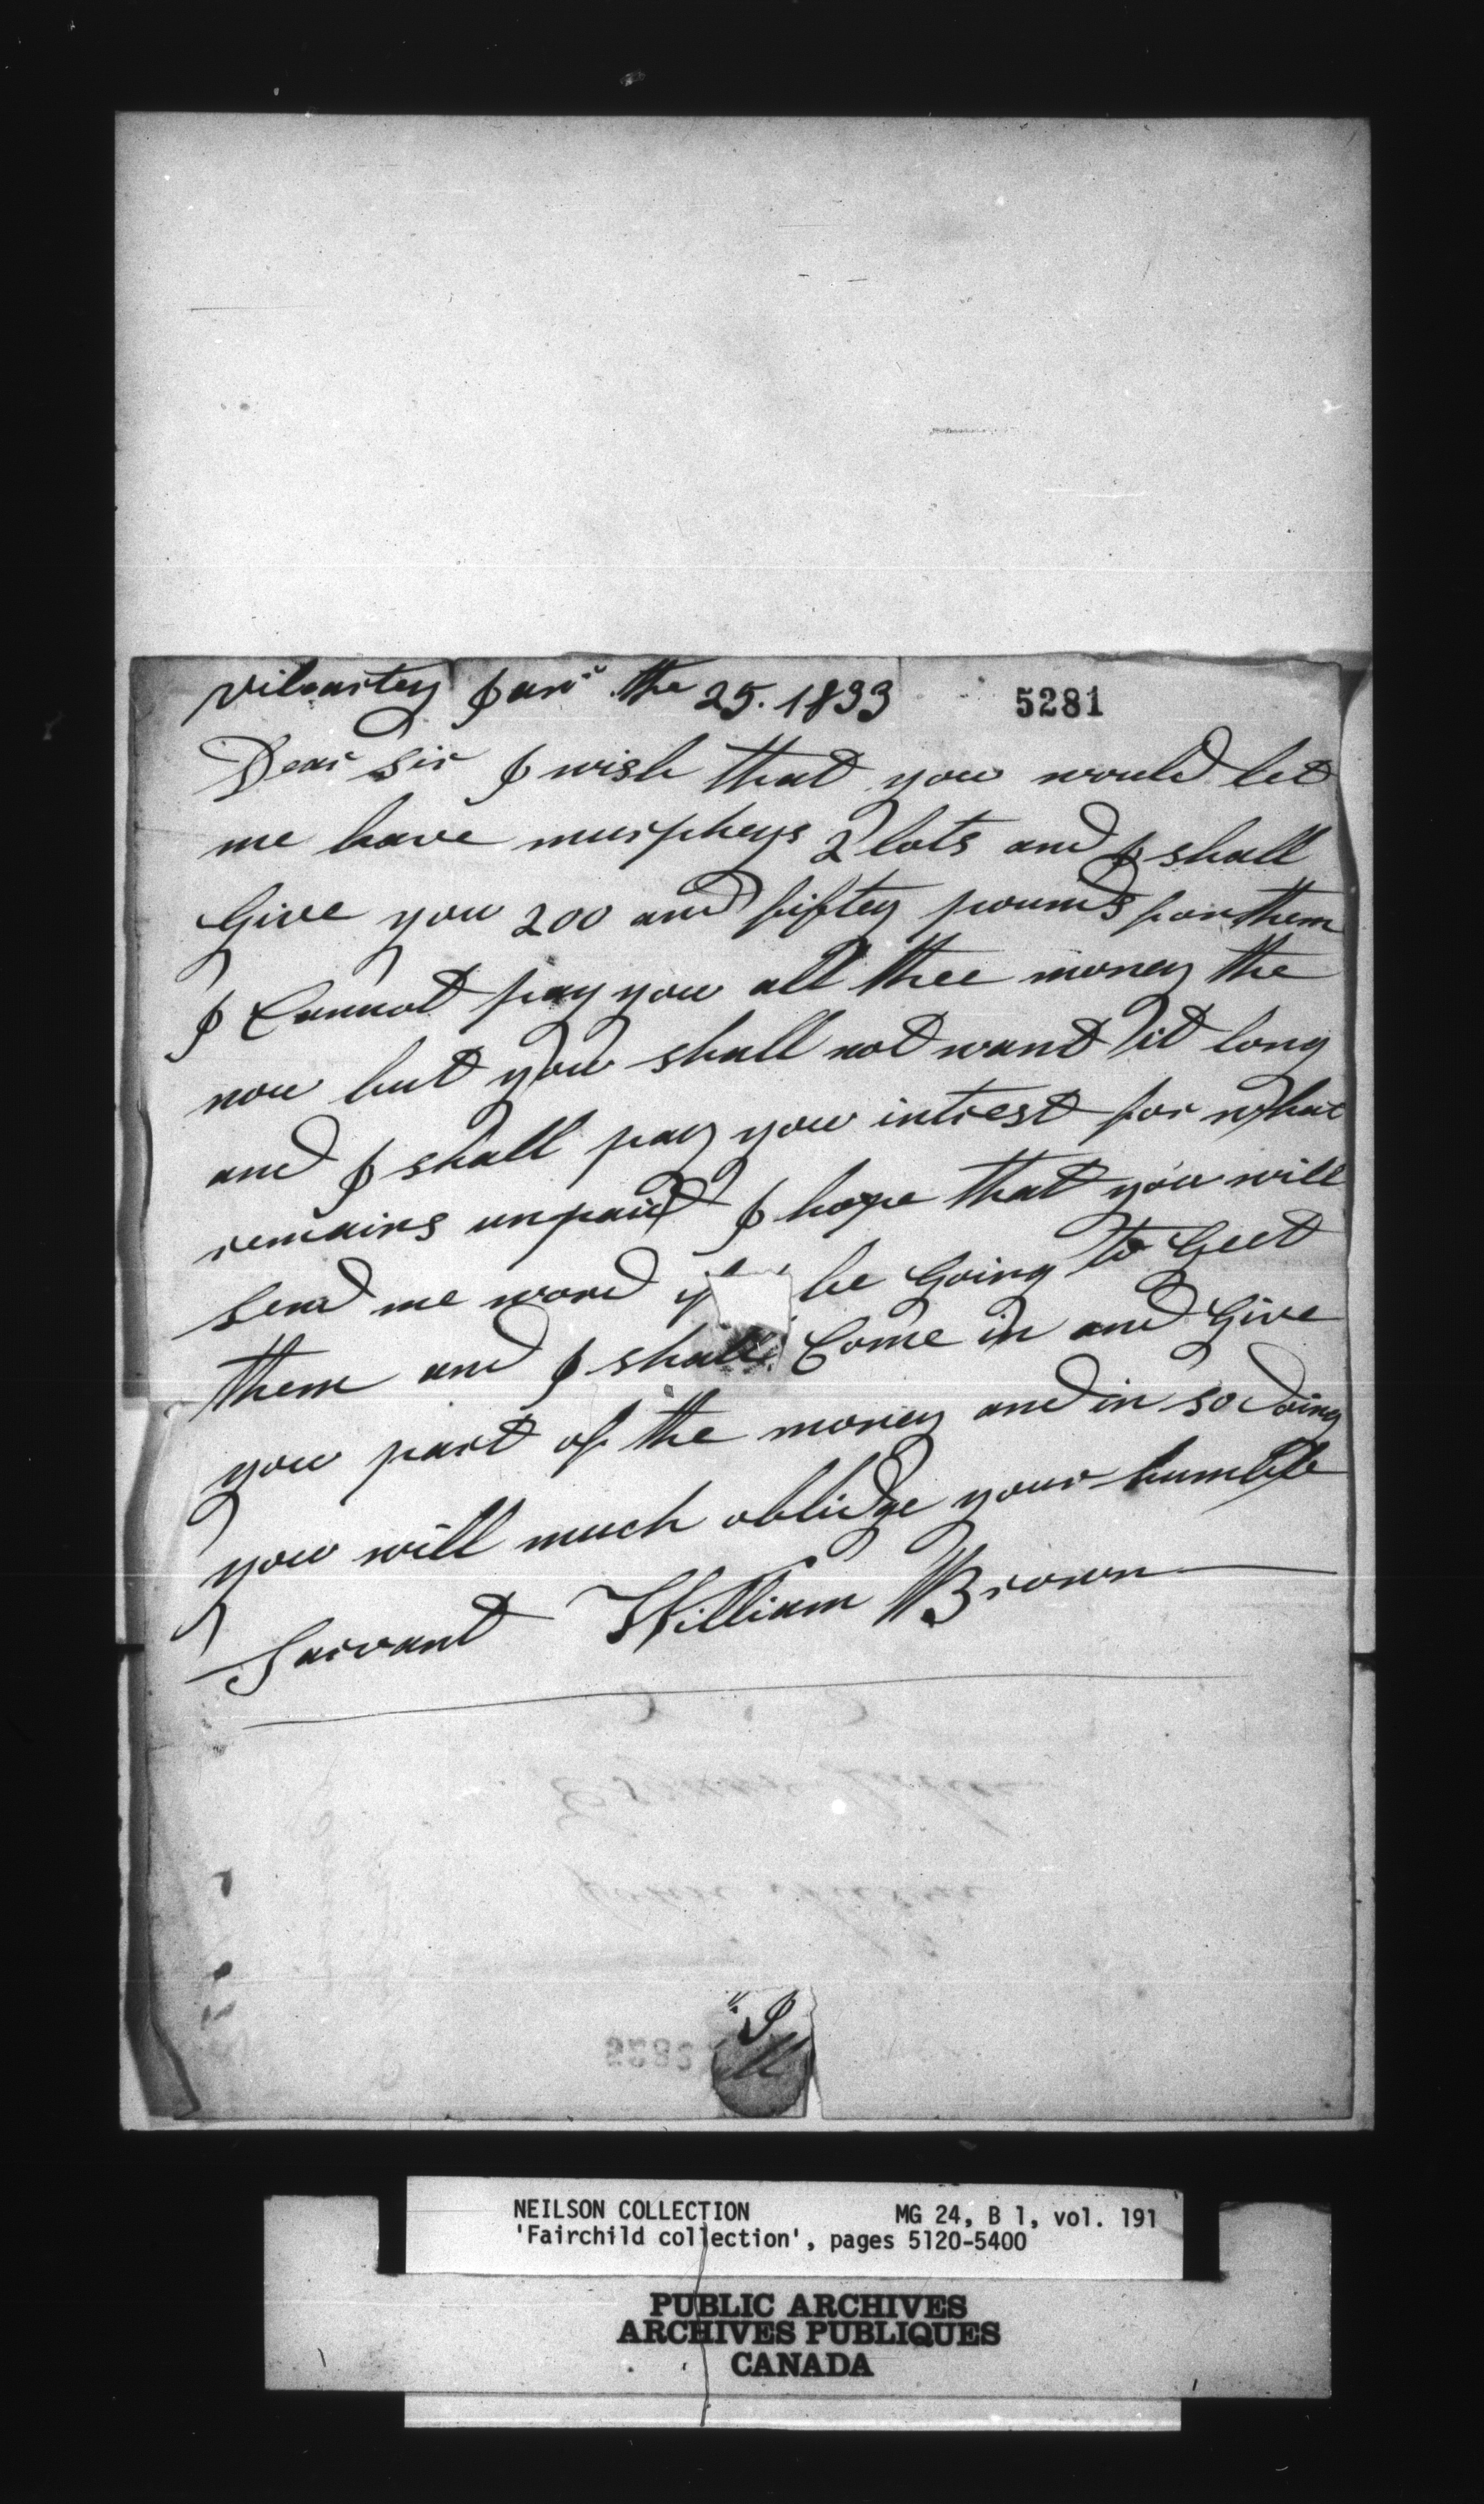 Vilcartey Janr the 25. 1833
5281
Dear Sir I wish that you would let
me have murpheys 2 lots and I shall
Give you 200 and fiftey pounds for them
I Cannot pay you all thee money the
now but you shall not want it long
and I shall pay you intrest for what
remains unpaid I hope that you will
send me word be Going to Geet
them and I shall Come in and Give
you part of the money and in so doing
you will much oblidge your humble
Sarvant William Brown
5282
NEILSON COLLECTION MG 24, B 1, vol. 191
'Fairchild collection', pages 5120-5400
PUBLIC ARCHIVES
ARCHIVES PUBLIQUES
CANADA